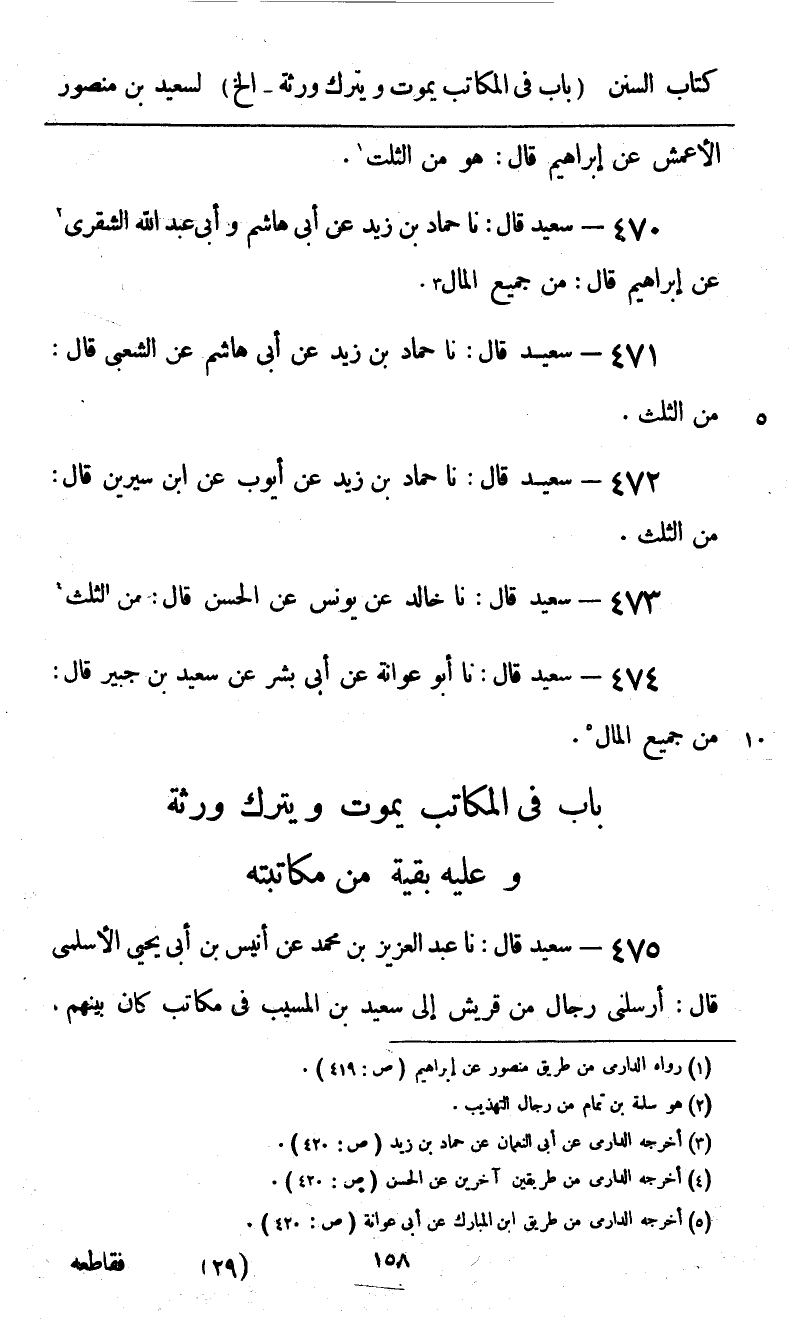 كتاب السنن (باب فى المكاتب يموت و يترك ورثة ـ الخ) لسعيد بن منصور
الأعمش عن إبراهيم قال: هو من الثلث١.
٤٧٠ — سعيد قال: نا حماد بن زيد عن أبى هاشم و أبى عبد الله الشقرى٢
عن إبراهيم قال: من جميع المال٣.
٤٧١ — سعيد قال: نا حماد بن زيد عن أبى هاشم عن الشعبى قال:
٥ من الثلث.
٤٧٢ — سعيد قال: نا حماد بن زيد عن أيوب عن ابن سيرين قال:
من الثلث.
٤٧٣ — سعيد قال: نا خالد عن يونس عن الحسن قال: من الثلث٤
٤٧٤ — سعيد قال: نا أبو عوانة عن أبى بشر عن سعيد بن جبير قال:
١٠ من جميع المال٥.
باب فى المكاتب يموت و يترك ورثة
و عليه بقية من مكاتبته
٤٧٥ — سعيد قال: نا عبد العزيز بن محمد عن أنيس بن أبى يحيى الأسلمى
قال: أرسلنى رجال من قريش إلى سعيد بن المسيب فى مكاتب كان بينهم.
(١) رواه الدارمى من طريق منصور عن إبراهيم (ص: ٤١٩).
(٢) هو سلمة بن تمام من رجال التهذيب.
(٣) أخرجه الدارمى عن أبى النعمان عن حماد بن زيد (ص: ٤٢٠).
(٤) أخرجه الدارمى من طريقين آخرين عن الحسن (ص: ٤٢٠).
(٥) أخرجه الدارمى من طريق ابن المبارك عن أبى عوانة (ص: ٤٢٠).
١٥٨ (٢٩) فقاطعه